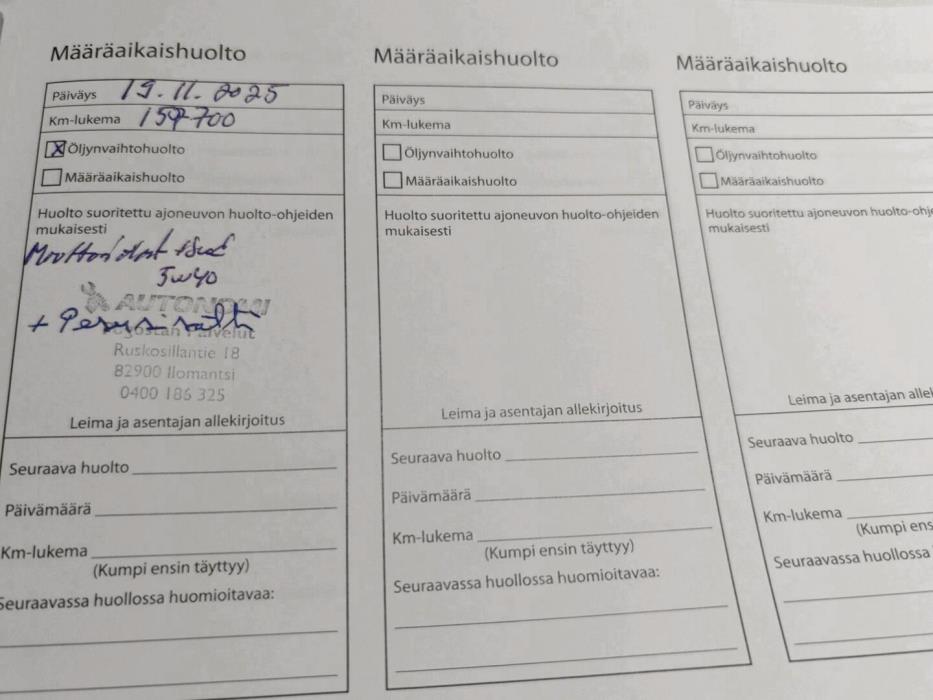 Määräaikaishuolto
Päiväys 19.11.2025
Km-lukema 159700
Öljynvaihtohuolto
Määräaikaishuolto
Huolto suoritettu ajoneuvon huolto-ohjeiden
mukaisesti
5w40
AUTONOMI
+ Perus
Palvelut
Ruskosillantie 18
82900 Ilomantsi
0400 186 325
Leima ja asentajan allekirjoitus
Seuraava huolto
Päivämäärä
Km-lukema
(Kumpi ensin täyttyy)
Seuraavassa huollossa huomioitavaa:
Määräaikaishuolto
Päiväys
Km-lukema
Öljynvaihtohuolto
Määräaikaishuolto
Huolto suoritettu ajoneuvon huolto-ohjeiden
mukaisesti
Leima ja asentajan allekirjoitus
Seuraava huolto
Päivämäärä
Km-lukema
(Kumpi ensin täyttyy)
Seuraavassa huollossa huomioitavaa:
Määräaikaishuolto
Päiväys
Km-lukema
Öljynvaihtohuolto
Määräaikaishuolto
Huolto suoritettu ajoneuvon huolto-ohj
mukaisesti
Leima ja asentajan allek
Seuraava huolto
Päivämäärä
Km-lukema
(Kumpi ens
Seuraavassa huollossa